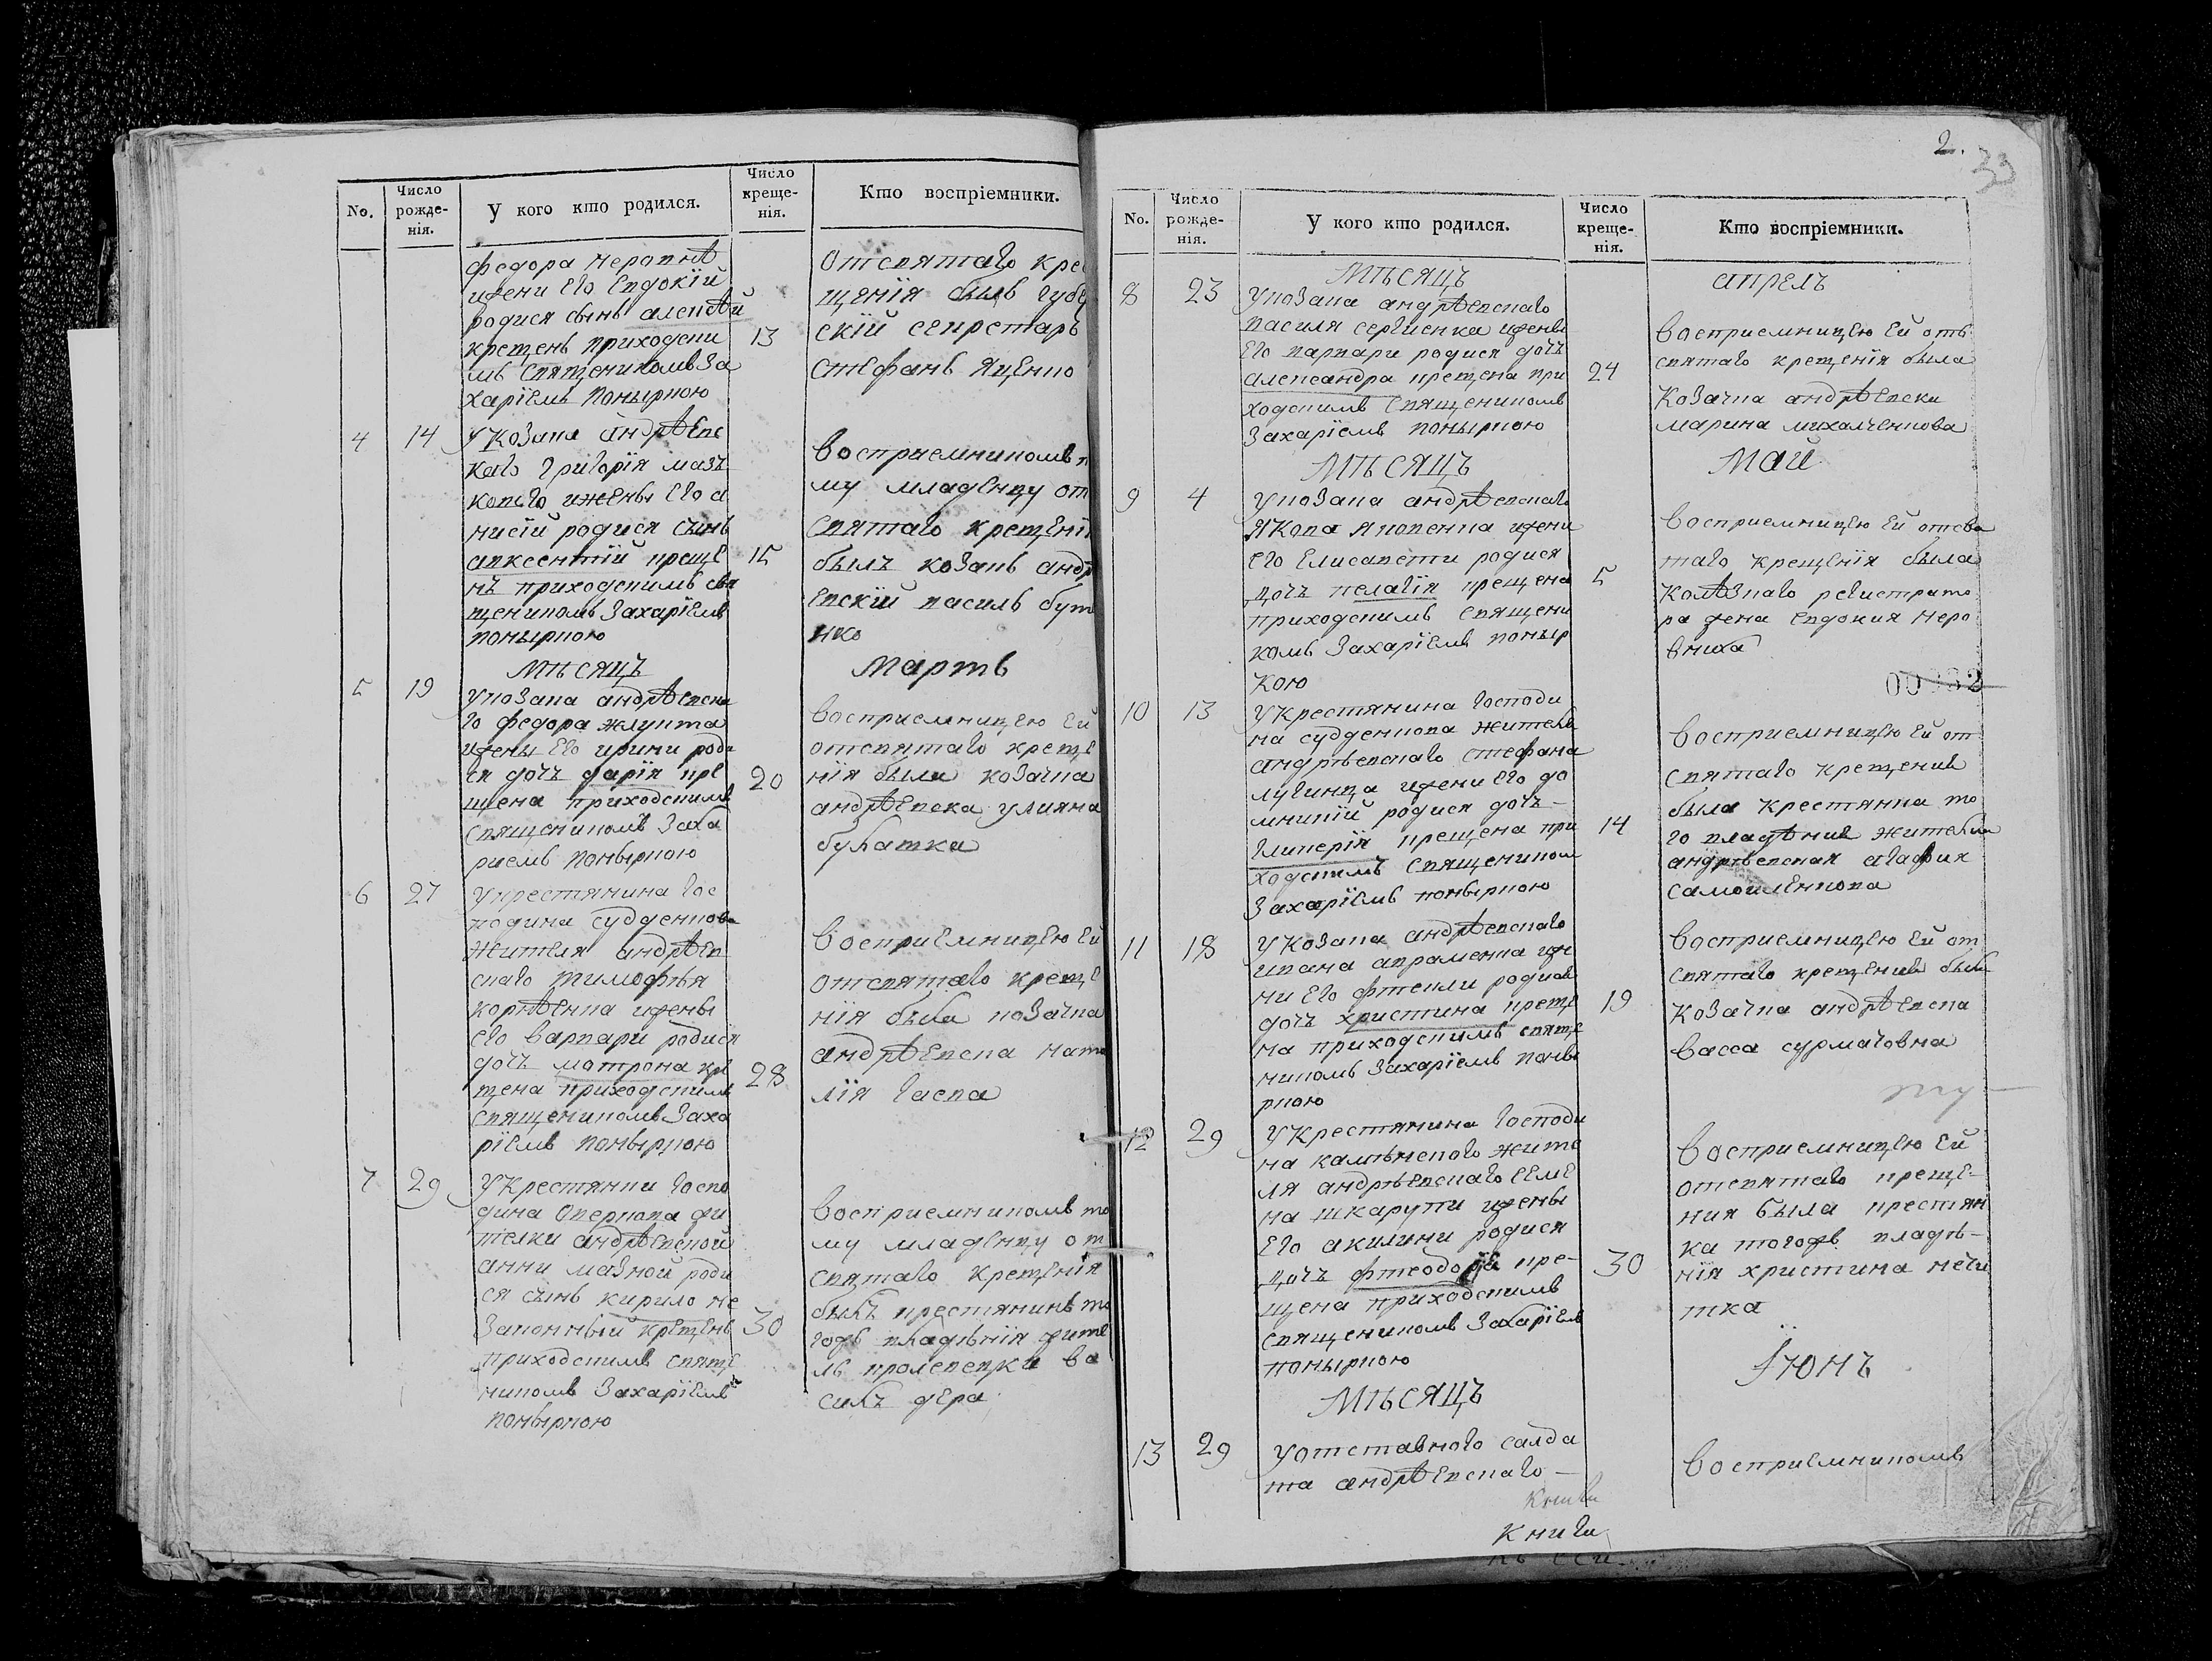 No.
Число рожде-нія.
У кого кто родился.
Число креще-нія.
Кто воспріемники.
федора
родися сынъ алепсѣй
крещенъ приходски
мъ священникомъ За
харіемъ Поныркою
13
отсвятаго кре
щенія былъ губе
скій секретаръ
стефанъ Яценко
4
14
У Козака андрѣевс
каго Григорія мазъ
ка его ижены его а
нисіи родися сынъ
авксентій креще
нъ приходскимъ свя
щеникомъ Захаріемъ
поныркою
15
Восприемникомъ
му младенцу от
святаго крещені
былъ козакъ анд
евскій василь бут
нко
мѣсяцъ
мартъ
5
19
у козака андрѣевска
го федора жлукта
ижены его ирини роди
ся дочъ дарія кре
щена приходскимъ
священикомъ Заха
риемъ поныркою
20
Восприемницею ей
отсвятаго креще
нія была козачка
андрѣевска улияна
6
27
У крестянина гос
подина судденкова
жителя андрѣев
скаго тимофѣя
корѣенка ижены
его варвари родися
дочъ матрона кре
щена приходскимъ
священикомъ Заха
ріемъ поныркою
28
Восприемницею ей
отсвятаго креще
нія была козачка
андрѣевска ната
лія
7
29
У Крестянки госпо
дина Оперкова жи
телки андрѣевской
анни мазной роди
ся сынъ кирило не
законный крещенъ
приходскимъ свяще
никомъ Захаріемъ
поныркою
30
Восприемникомъ то
му младенцу от
святаго крещенія
былъ крестянинъ то
гожъ владѣнія жите
лъ пролевецки ва
силъ дера
2.
33
No.
Число рожде-нія.
У кого кто родился.
Число креще-нія.
Кто воспріемники.
мѣсяцъ
апрелъ
8
23
У козака андрѣевскаго
василя сергиенка ижены
его варвари родися дочъ
александра крещена при
ходскимъ священикомъ
Захаріемъ поныркою
24
Восприемницею ей отъ
святаго крещенія была
Козачка андрѣевски
марина михалченкова
мѣсяцъ
май
9
4
У козака андрѣевскаго
Якова Яковенка жени
его Елисавети родися
дочъ пелагія крещена
приходскимъ священи
комъ Захаріемъ поныр
кою
5
Восприемницею ей отсвя
таго крещенія была
Колѣзкаго регистрато
ра жена евдокия Неро
вниха
10
13
У Крестянина господи
на судденкова жителя
андрѣевскаго стефана
лугинца жени его до
мникіи родися дочъ
гликерія крещена при
ходскимъ священиком
Захаріемъ поныркою
14
Восприемницею ей от
святаго крещения
была крестянка то
го владѣния жителка
андрѣевская агафия
самоиленкова
11
18
У Козака андрѣевскаго
ивана авраменка же
ни его фтекли родися
дочъ христина креще
на приходскимъ свяще
никомъ Захаріемъ поны
ркою
19
Восприемницею ей от
святаго крещения была
козачка андрѣевска
васса сурмаговна
12
29
У Крестянина господи
на камѣнского жите
ля андрѣевскаго семе
на шкарупи жены
его акилини родися
дочъ фтеодосія кре-
щена приходскимъ
священикомъ Захаріемъ
поныркою
30
Восприемницею ей
отсвятаго креще-
ния была крестян
ка тогожъ владѣ-
нія христина
тка
мѣсяцъ
Іюнъ
13
29
У отставного салда
та андрѣевскаго
Восприемникомъ
Книги
Книги